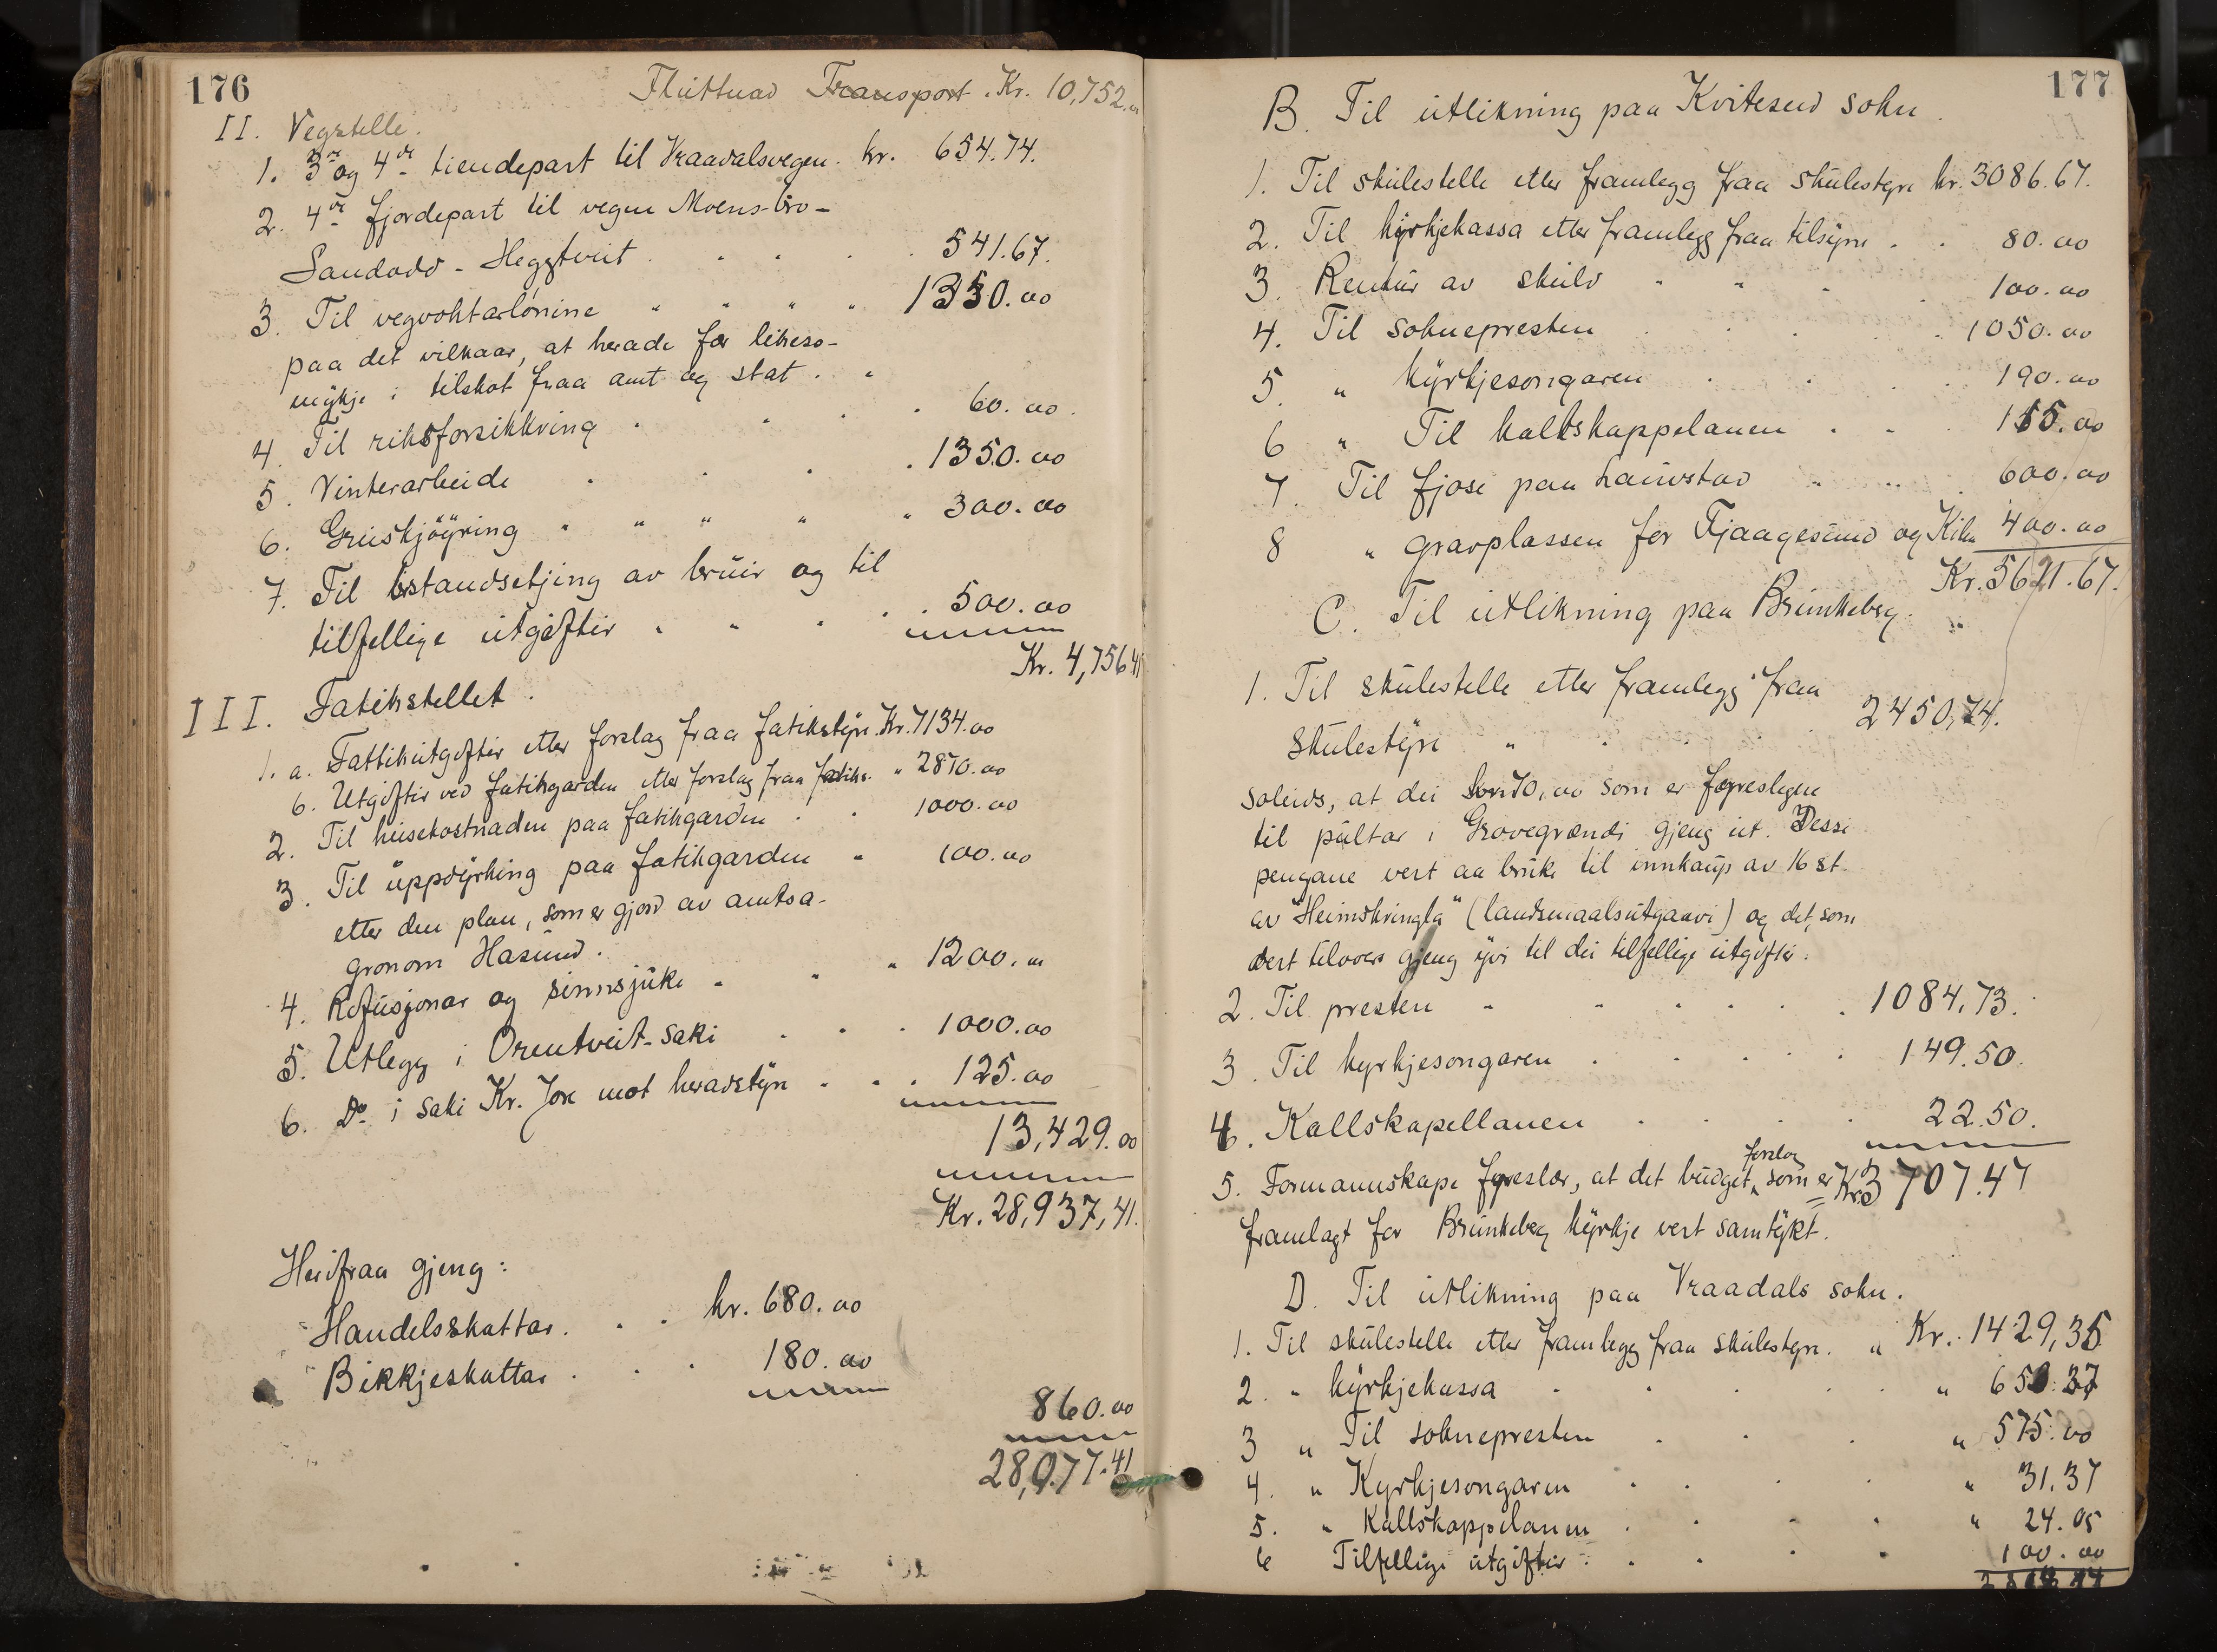 176
Fluttnad Transport. Kr. 10,752.00
II. Vegstelle.
1. 3de og 4de tiendepart til Vraadalsvegen. kr. 654.74.
2. 4de fjordepart til vegen Moens-bro-
Sandodd - Heggtveit . . . . 541.67.
3. Til vegvohtarlönine " " " " 1350.00
paa det vilkaar, at herade fær likeso-
mykje i tilskot fraa amt og stat . "
4. Til riksforsikkring . . . . 60.00.
5. Vinterarbeide . . . . 1350.00
6. Gruskjöyring " " " " " 300.00
7. Til istandsetjing av bruir og til
tilfellige utgifter . . . . . 500.00
Kr. 4,756.41
III. Fatikstellet.
1. a. Fattikutgifter etter forslag fraa fatikstyre. Kr. 7134.00
b. Utgifter ved fatikgarden etter forslag fraa fatiks. " 2870.00
2. Til husekostnaden paa fatikgarden . . 1000.00
3. Til uppdyrking paa fatikgarden " 100.00
etter den plan, som er gjord av amtsa-
gronom Hasund.
4. Refusjonar og sinnsjuke " " " 1200.00
5. Utlegg i Oreutveit-saki . . . 1000.00
6. Do i saki Kr. Jore mot heradstyre . . . 125.00
13,429.00
Kr. 28,937,41.
Herifraa gjeng:
Handelsskattar. . . kr. 680.00
Bikkjeskattar . . . 180.00
860.00
28,077.41
177
B. Til utlikning paa Kviteseid sokn.
1. Til skulestelle etter framlegg fraa skulestyre kr. 3086.67.
2. Til kyrkjekassa etter framlegg fraa tilsyne . . 80.00
3. Rentur av skuld " " " . 100.00
4. Til soknepresten . . . . 1050.00
5. " kyrkjesongaren . . . 190.00
6 " Til kallskappelanen . . . 115.00
7. Til fjose paa Lauvstad " " . 600.00
8 " gravplassen for Fjaagesund og Kilen 400.00
Kr. 5621.67.
C. Til utlikning paa Brunkeberg.
1. Til skulestelle etter framlegg fraa
skulestyre " . . . 2450,74.
soleids, at dei 70,00 som er fyreslegne
til pultar i Grovegrændi gjeng ut. Dessi
pengane vert aa bruke til innkaup av 16 st.
av "Heimskringla" (landsmaalsutgaavi) og det, som
vert tilovers gjeng yvi til dei tilfellige utgifter.
2. Til presten " " . . . . 1084,73.
3. Til kyrkjesongaren . . . . . 149.50.
4. Kallskapellanen . . . . 22.50.
5. Formannskape fyreslær, at det budget forslag som er Kr. 3707.47
framlagt for Brunkeberg kyrkje vert samtykt.
D. Til utlikning paa Vraadals sokn.
1. Til skulestelle etter framlegg fraa skulestyre. " Kr. 1429,35
2. " kyrkjekassa . . . . . "
3 " Til soknepresten . . . " 575.00
4. " Kyrkjesongaren . . . " 31.37
5. " Kallskappelanen . . . . " 24.05
6 Tilfellige utgifter . . . . 100.00